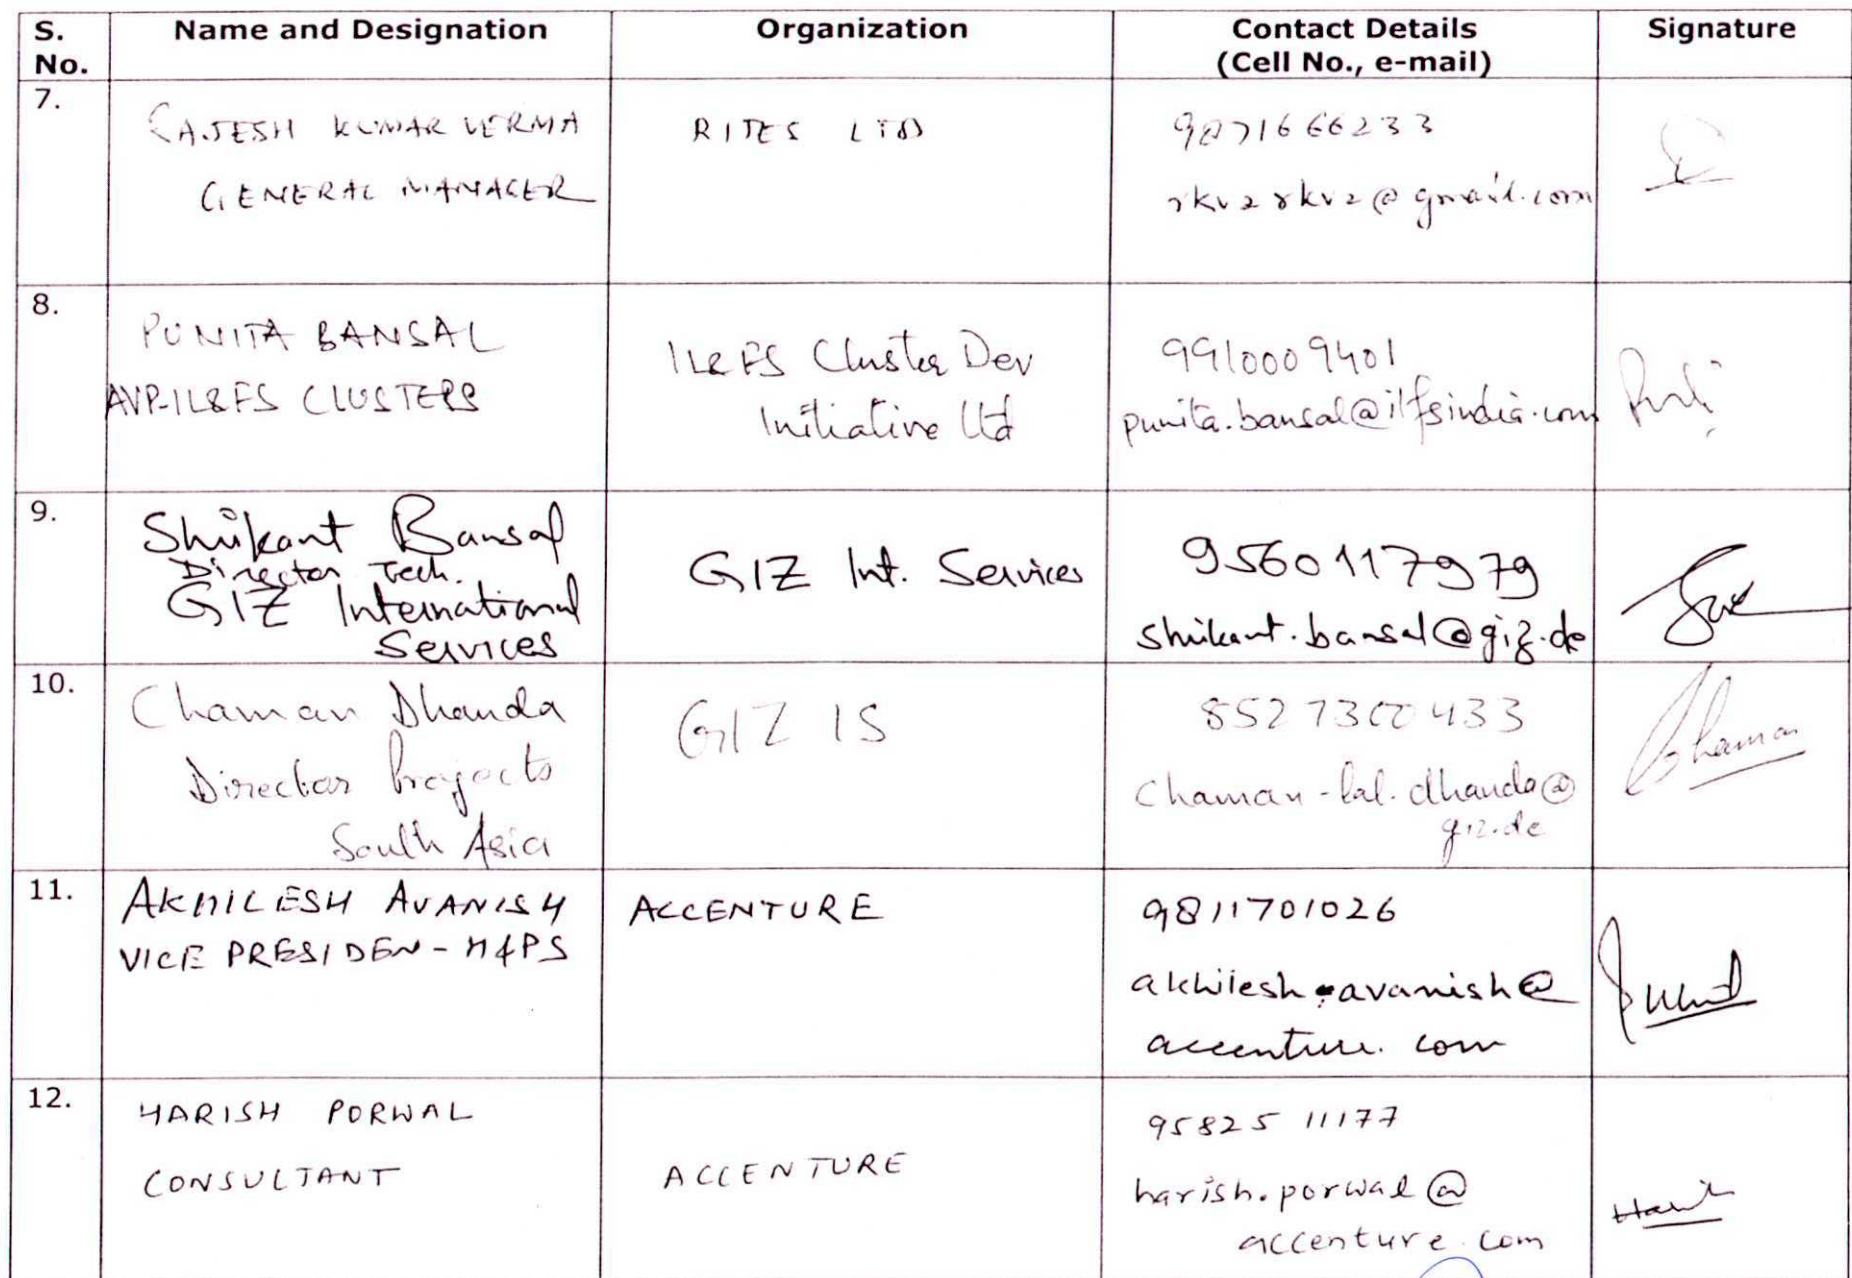 S. No.
Name and Designation
Organization
Contact Details
(Cell No., e-mail)
Signature
7.
RAJESH KUMAR VERMA
GENERAL MANAGER
RITES LTD
9871666233
rkv2rkv2@gmail.com
8.
PUNITA BANSAL
AVP-IL&FS CLUSTERS
IL&FS Cluster Dev
Initiative Ltd
9910009401
punita.bansal@ilfsindia.com
9.
Shrikant Bansal
Director Tech.
GIZ International
Services
GIZ Int. Services
9560117979
shrikant.bansal@giz.de
10.
Chaman Dhanda
Director Projects
South Asia
GIZ IS
8527300433
Chaman-lal.dhanda@
giz.de
Chaman
11.
AKHILESH AVANISH
VICE PRESIDEN - H&PS
ACCENTURE
9811701026
akhilesh.avanish@
accenture.com
12.
HARISH PORWAL
CONSULTANT
ACCENTURE
95825 11177
harish.porwal@
accenture.com